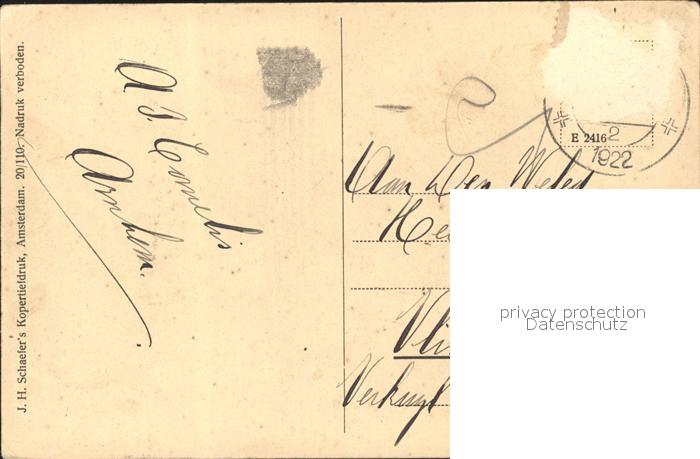 J. H. Schaefer's Kopertiefdruk, Amsterdam. 20|110. Nadruk verboden.
A J. Cornelis
Arnhem.
2
1922
E 2416
Aan Den Weled
privacy protection
Datenschutz